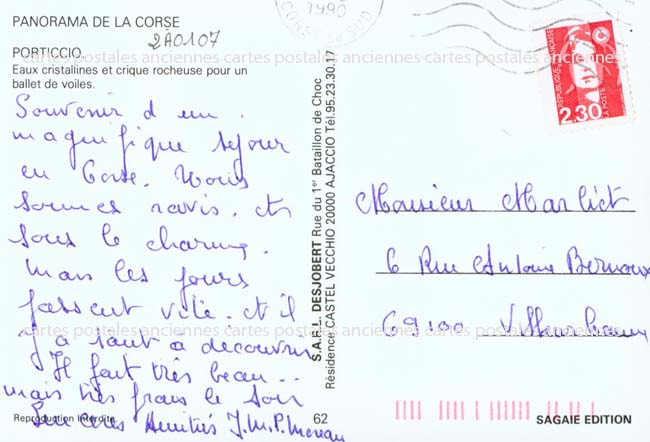 PANORAMA DE LA CORSE
2A0107
PORTICCIO
Eaux cristallines et crique rocheuse pour un
ballet de voiles.
Souvenir d'un
magnifique séjour
en Corse. Nous
sommes ravis. et
sous le charme.
Mais les jours
passent vite. et il
y a tant à découvrir
Il fait très beau...
mais très frais le soir
Amitiés J.M.P. Moreau
Reproduction Interdite
62
S.A.R.L. DESJOBERT Rue du 1er Bataillon de Choc
Résidence CASTEL VECCHIO 20000 AJACCIO Tél. 95.23.30.17
1990
CORSE DU SUD
REPUBLIQUE FRANÇAISE
LA POSTE
2,30
Monsieur Marlict
6 Rue Antoine
69100 Villeurbanne
SAGAIE EDITION
cartes postales anciennes cartes postales anciennes cartes postales anciennes
cartes postales anciennes cartes postales anciennes cartes postales anciennes